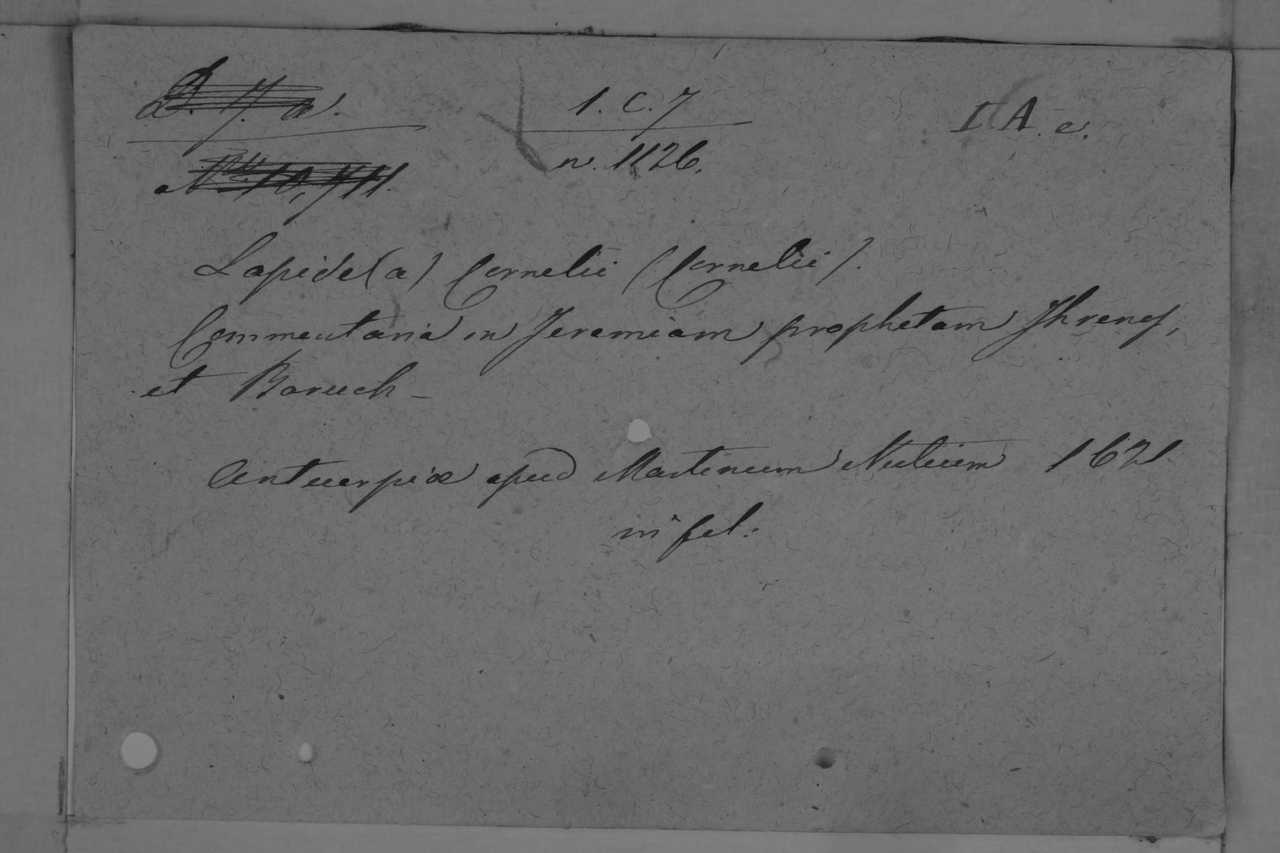 1. C. 7
I A. e.
n. 1126.
Lapide (a) Cornelii (Cornelii).
Commentaria in Jeremiam prophetam Threnos,
et Baruch -
Antuerpiæ apud Martinum Nutium 1621
in fol: